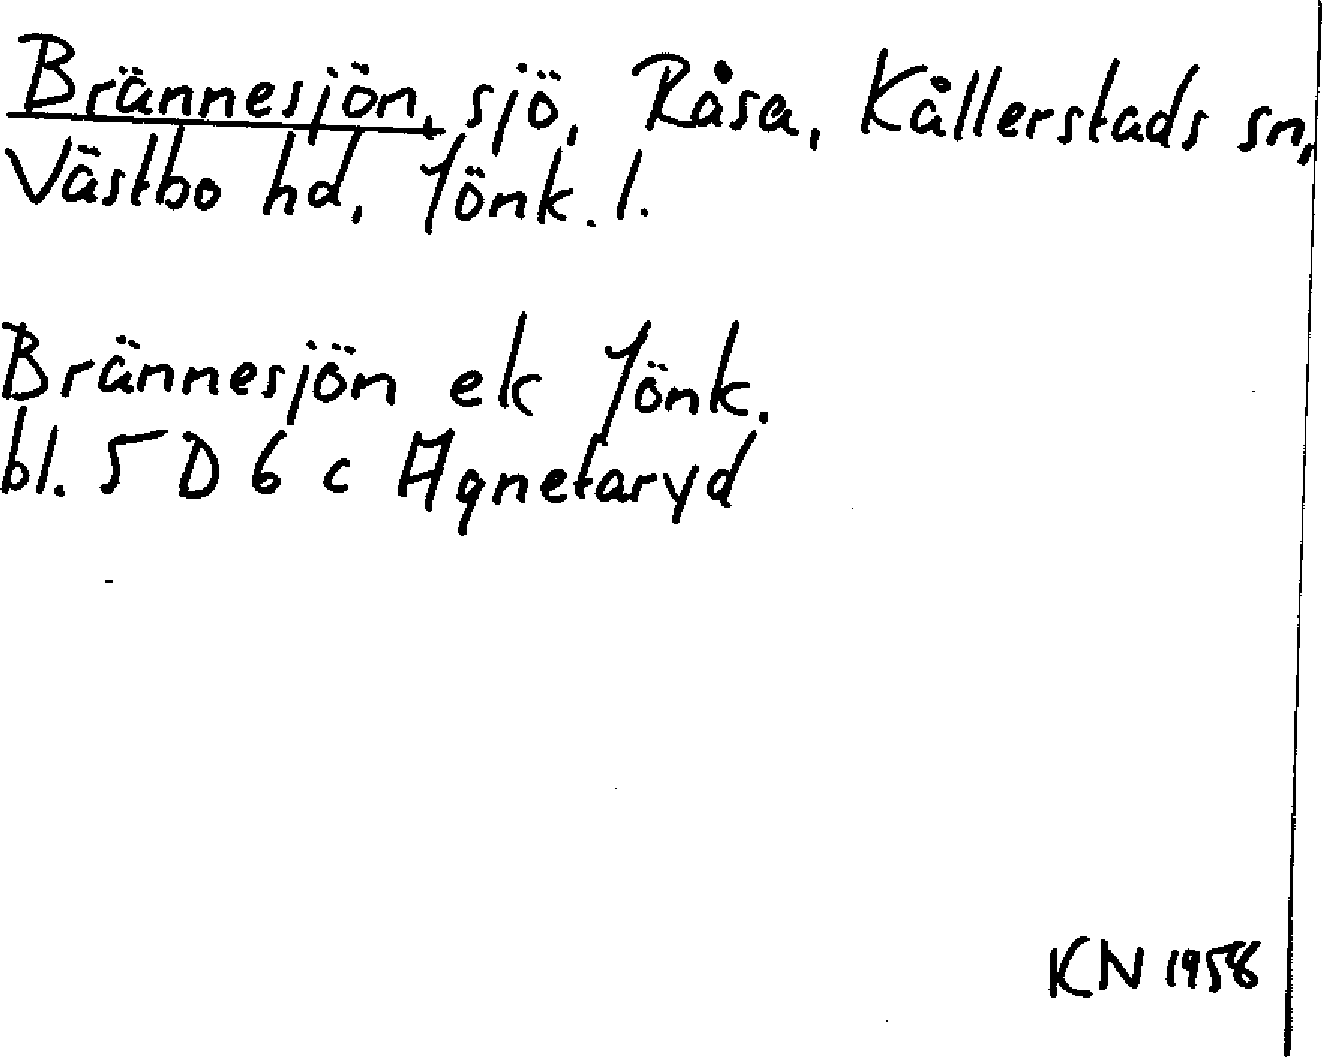 Brännesjön, sjö, Råsa, Kållerstads sn,
Västbo hd, Jönk. l.
Brännesjön ek Jönk.
bl. 5 D 6 c Agnetaryd
KN 1958